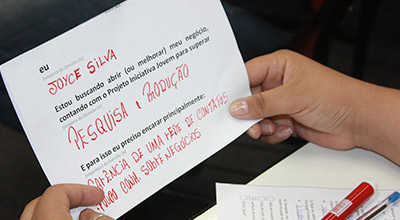 eu
JOYCE SILVA
Estou buscando abrir (ou melhorar) meu negócio,
contando com o Projeto Iniciativa Jovem para superar
PESQUISA E PRODUÇÃO
E para isso eu preciso encarar principalmente:
CARÊNCIA DE UMA REDE DE CONTATOS
SOBRE NEGÓCIOS